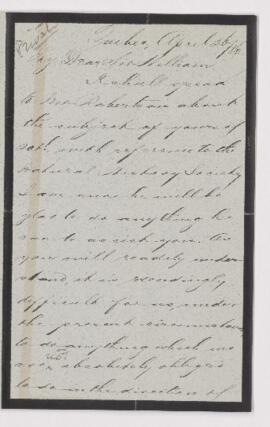 Private
Quebec, April 26/86
My Dear Sir William
I shall speak
to Mr Robertson about
the subject of yours of
20th, with reference to the
Natural History Society
I am sure he will be
glad to do anything he
can to assist you. As
you will readily under-
stand, it is exceedingly
difficult for us, under
the present circumstances,
to do anything which we
are not absolutely obliged
to do in the direction of